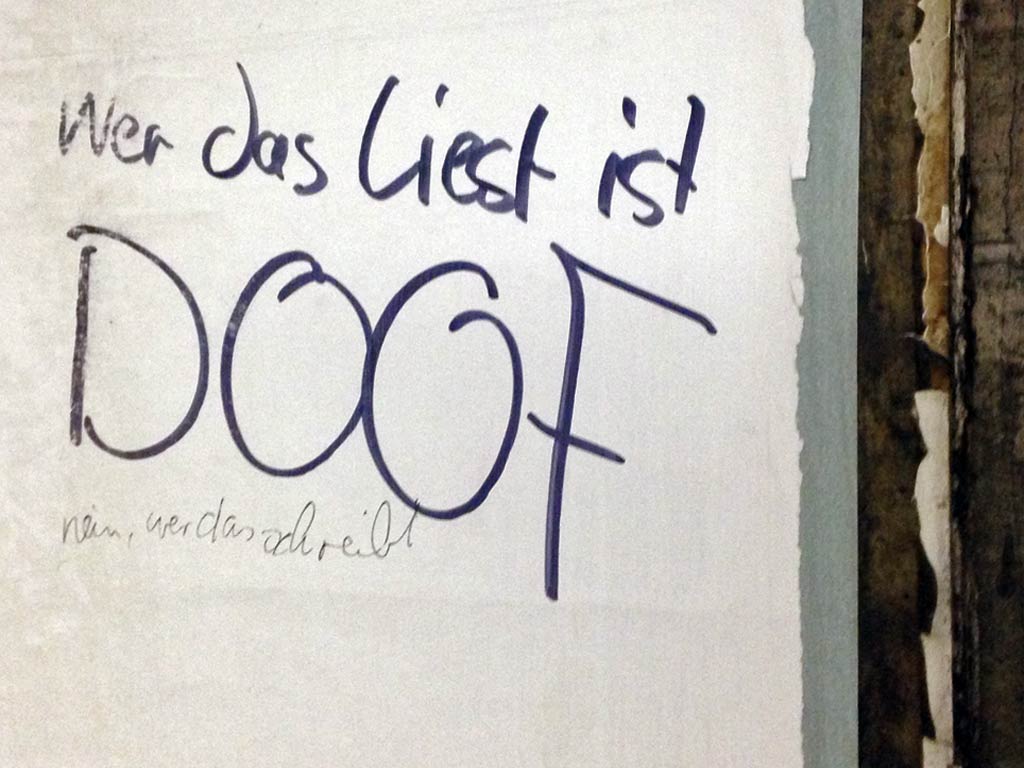 Wer das Liest ist
DOOF
nein, wer das schreibt